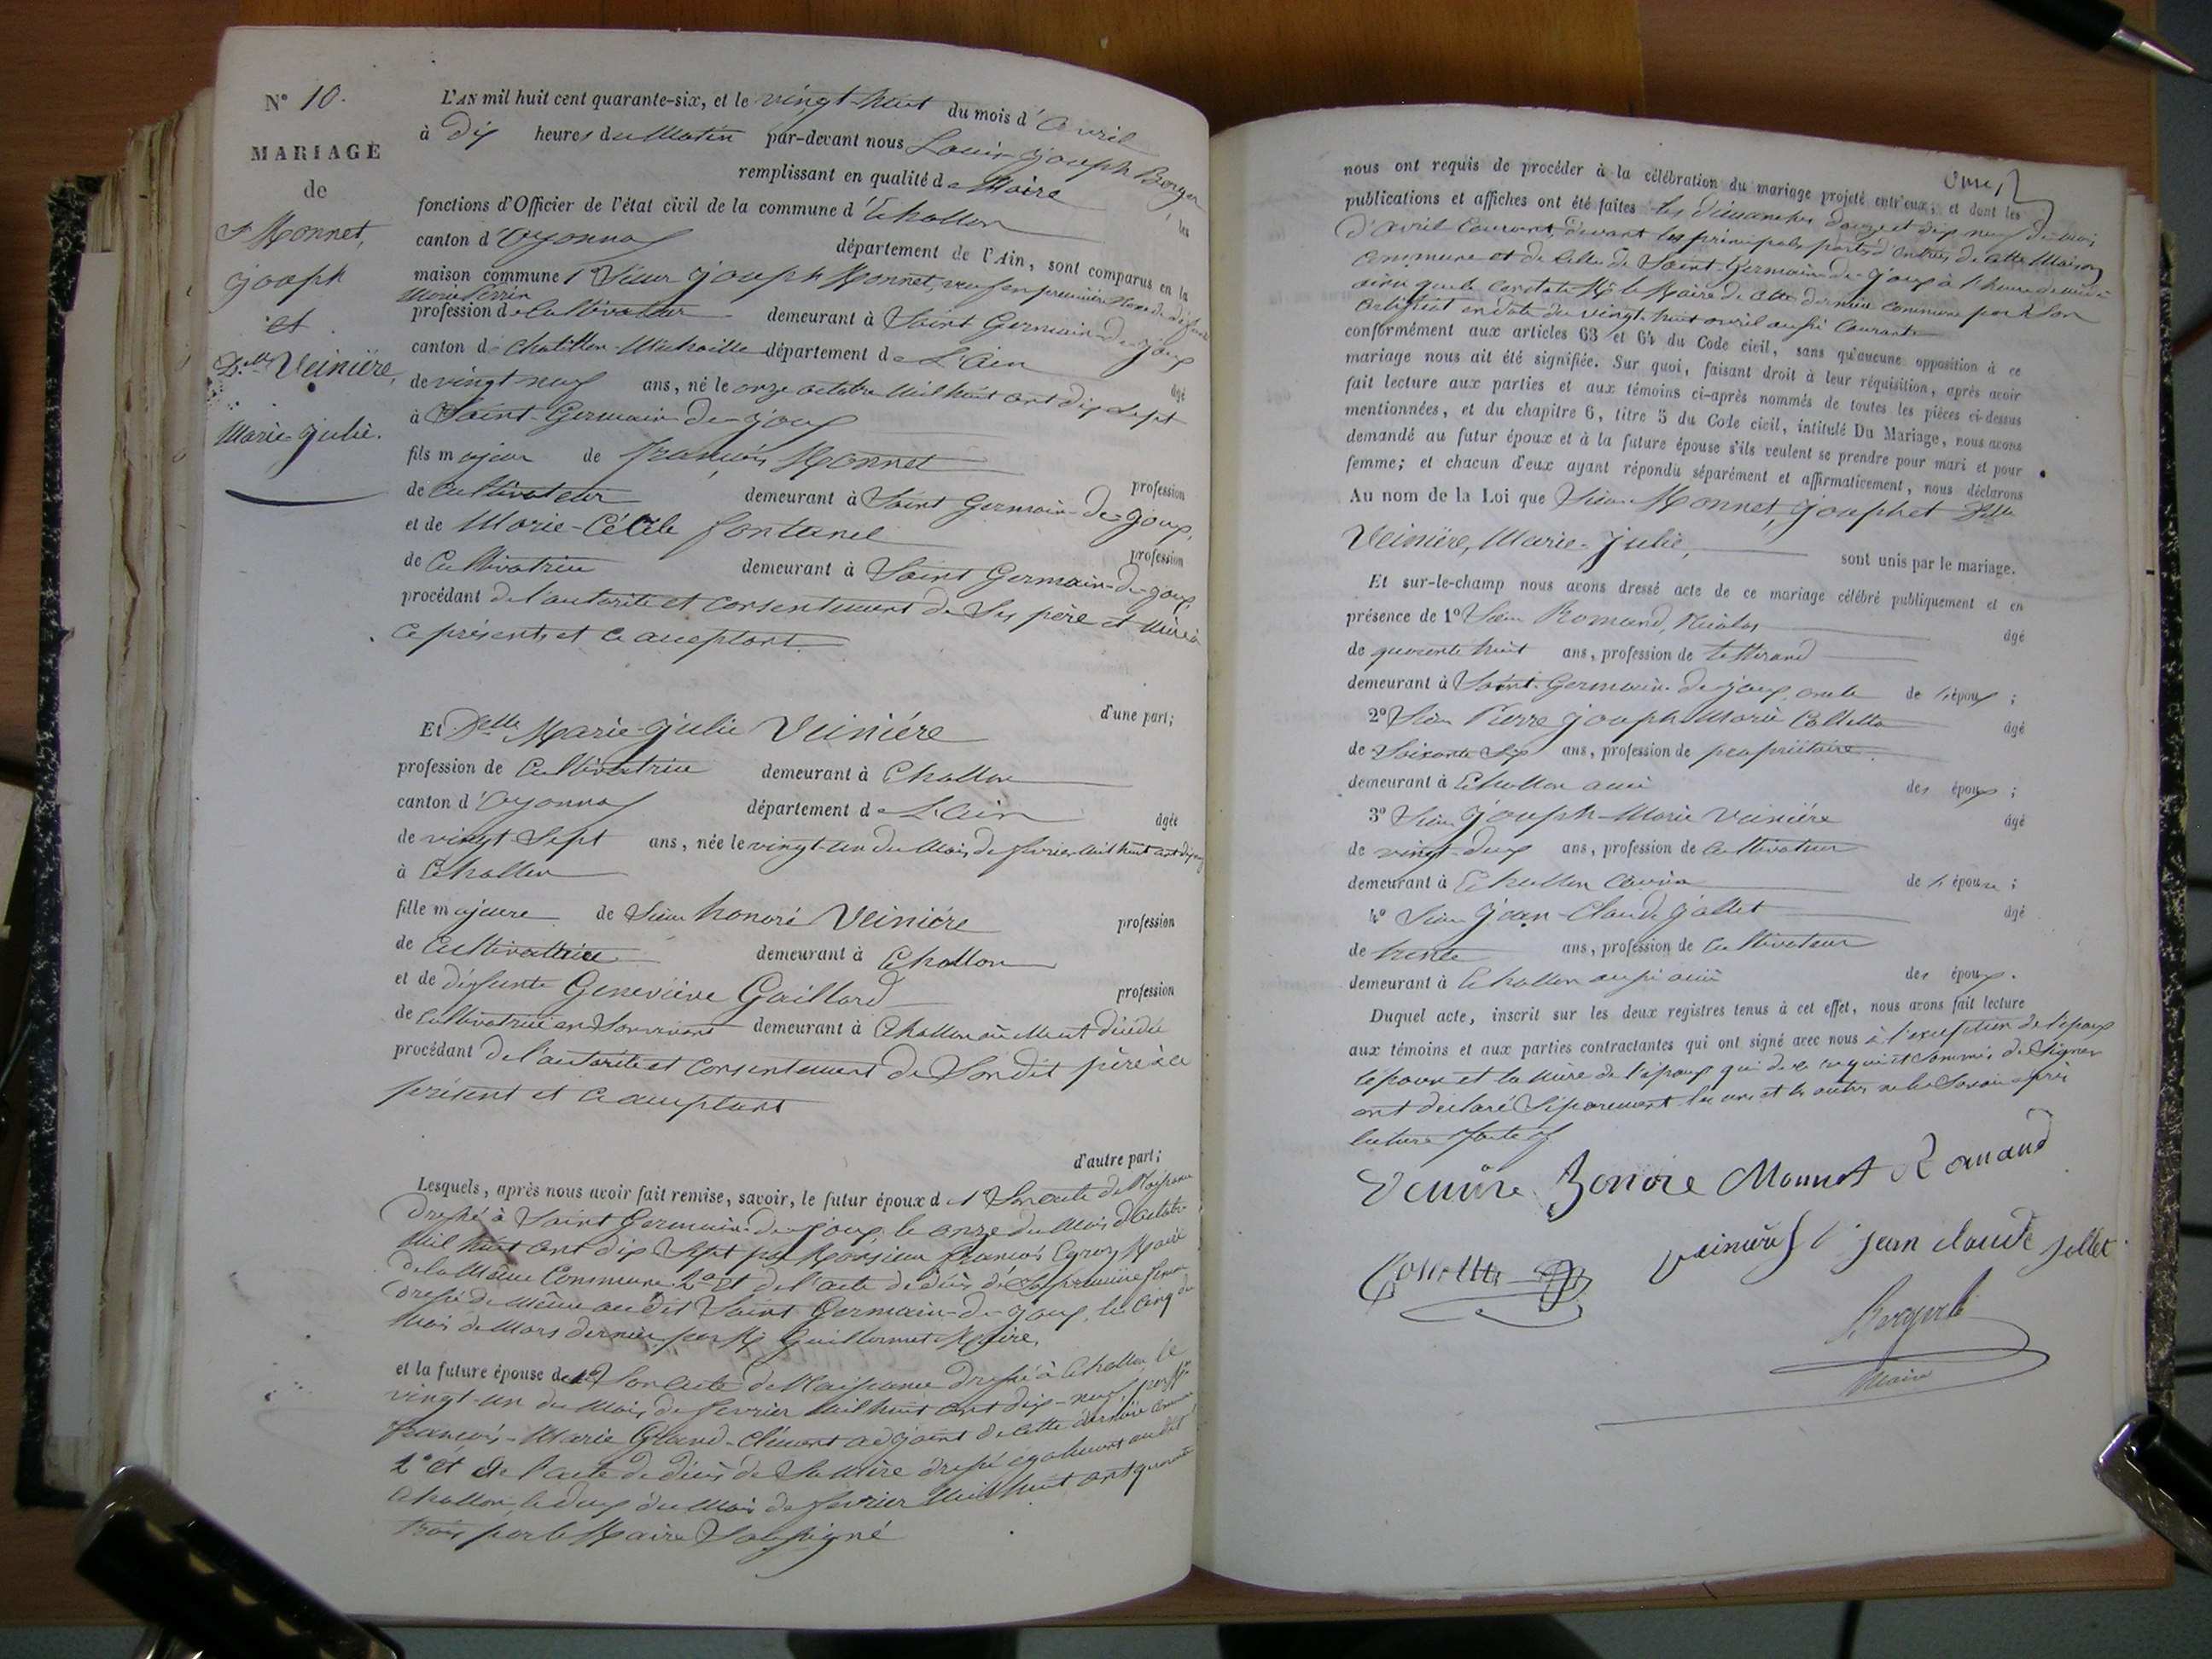 N° 10.
MARIAGE
de
Sr Monnet,
joseph
et
Delle Veinière,
Marie-julie.
L'AN mil huit cent quarante-six, et le vingt-huit du mois d'avril
à dix heures du Matin par-devant nous Louis joseph Berger
remplissant en qualité de Maire les
fonctions d'Officier de l'état civil de la commune d'Echallon
canton d'Oyonnax département de l'Ain, sont comparus en la
maison commune 1° Sieur joseph Monnet, veuf en première Noce de défunte
Marie Perrin
profession de Cultivateur demeurant à Saint Germain-de-joux
canton de Chatillon-Michaille département de L'Ain âgé
de vingt neuf ans, né le onze octobre Mil huit cent dix Sept
à Saint-Germain-de-joux
fils majeur de françois Monnet profession
de Cultivateur demeurant à Saint Germain-de-joux,
et de Marie-Cécile fontanel profession
de Cultivatrice demeurant à Saint Germain-de-joux,
procédant de l'autorité et consentement de Ses père et Mère à
ce présents et ce acceptant
d'une part;
Et Delle Marie-julie Veiniére
profession de Cultivatrice demeurant à Echallon
canton d'Oyonnax département de L'Ain âgée
de vingt Sept ans, née le vingt-un du Mois de fevrier Mil huit cent dix neuf
à Echallon
fille majeure de Sieur honoré Veiniére profession
de Cultivateur demeurant à Echallon
et de défunte Geneviève Gaillard profession
de Cultivatrice en Son vivant demeurant à Echallon où elle est décédée
procédant de l'autorité et Consentement de Son dit père à ce
présent et ce acceptant
d'autre part;
Lesquels, après nous avoir fait remise, savoir, le futur époux de 1° Son acte de Naissance
Dressé à Saint Germain-de-joux le onze du Mois d'octobre
Mil huit cent dix Sept par Monsieur francois Maire
de la Même Commune. 2° Et de l'acte de décès de Sa première femme
Dressé de Même au dit Saint Germain-de-joux, le Cinq du
Mois de Mars dernier par Mr Guillermet Maire,
et la future épouse de 1° Son acte de Naissance Dressé à Echallon le
vingt-un du Mois de fevrier Mil huit cent dix-neuf par Mr
francois-Marie Grand-Clément adjoint de cette dernière commune
2° Et de l'acte de décès de Sa Mère dressé également au dit
Echallon, le deux du Mois de fevrier Mil huit cent quarante
trois par le Maire Soussigné
onze
nous ont requis de procéder à la célébration du mariage projeté entr'eux, et dont les
publications et affiches ont été faites les dimanches douze et dix neuf du mois
d'avril Courant, devant les principales portes d'entrées de cette Maison
Commune et de Celle de Saint-Germain-de-joux à l'heure de midi
ainsi que le Constate Mr le Maire de cette dernière Commune par Son
Certificat en date du vingt huit avril aussi Courant
conformément aux articles 63 et 64 du Code civil, sans qu'aucune opposition à ce
mariage nous ait été signifiée. Sur quoi, faisant droit à leur réquisition, après avoir
fait lecture aux parties et aux témoins ci-après nommés de toutes les pièces ci-dessus
mentionnées, et du chapitre 6, titre 5 du Code civil, intitulé Du Mariage, nous avons
demandé au futur époux et à la future épouse s'ils veulent se prendre pour mari et pour
femme; et chacun d'eux ayant répondu séparément et affirmativement, nous déclarons
Au nom de la Loi que Sieur Monnet, joseph et Delle
Veiniére, Marie-julie, sont unis par le mariage.
Et sur-le-champ nous avons dressé acte de ce mariage célébré publiquement et en
présence de 1° Sieur Romand, Nicolas âgé
de quarante huit ans, profession de tisserand
demeurant à Saint-Germain-de-joux, oncle de l'époux;
2° Sieur Pierre joseph Marie Colletta âgé
de Soixante Six ans, profession de propriétaire
demeurant à Echallon ami des époux;
3° Sieur joseph-Marie Veiniére âgé
de vingt-deux ans, profession de Cultivateur
demeurant à Echallon Cousin de l'épouse;
4° Sieur jean-Claude jallet âgé
de trente ans, profession de Cultivateur
demeurant à Echallon aussi ami des époux.
Duquel acte, inscrit sur les deux registres tenus à cet effet, nous avons fait lecture
aux témoins et aux parties contractantes qui ont signé avec nous à l'exception de l'époux
l'épouse et la Mère de l'époux qui de ce requis et Sommés de Signer
ont déclaré Séparement les uns et les autres ne le Savoir après
lecture faite
Veniere Honore Monnet Romand
veiniere jean claude jallet
Berger
Maire